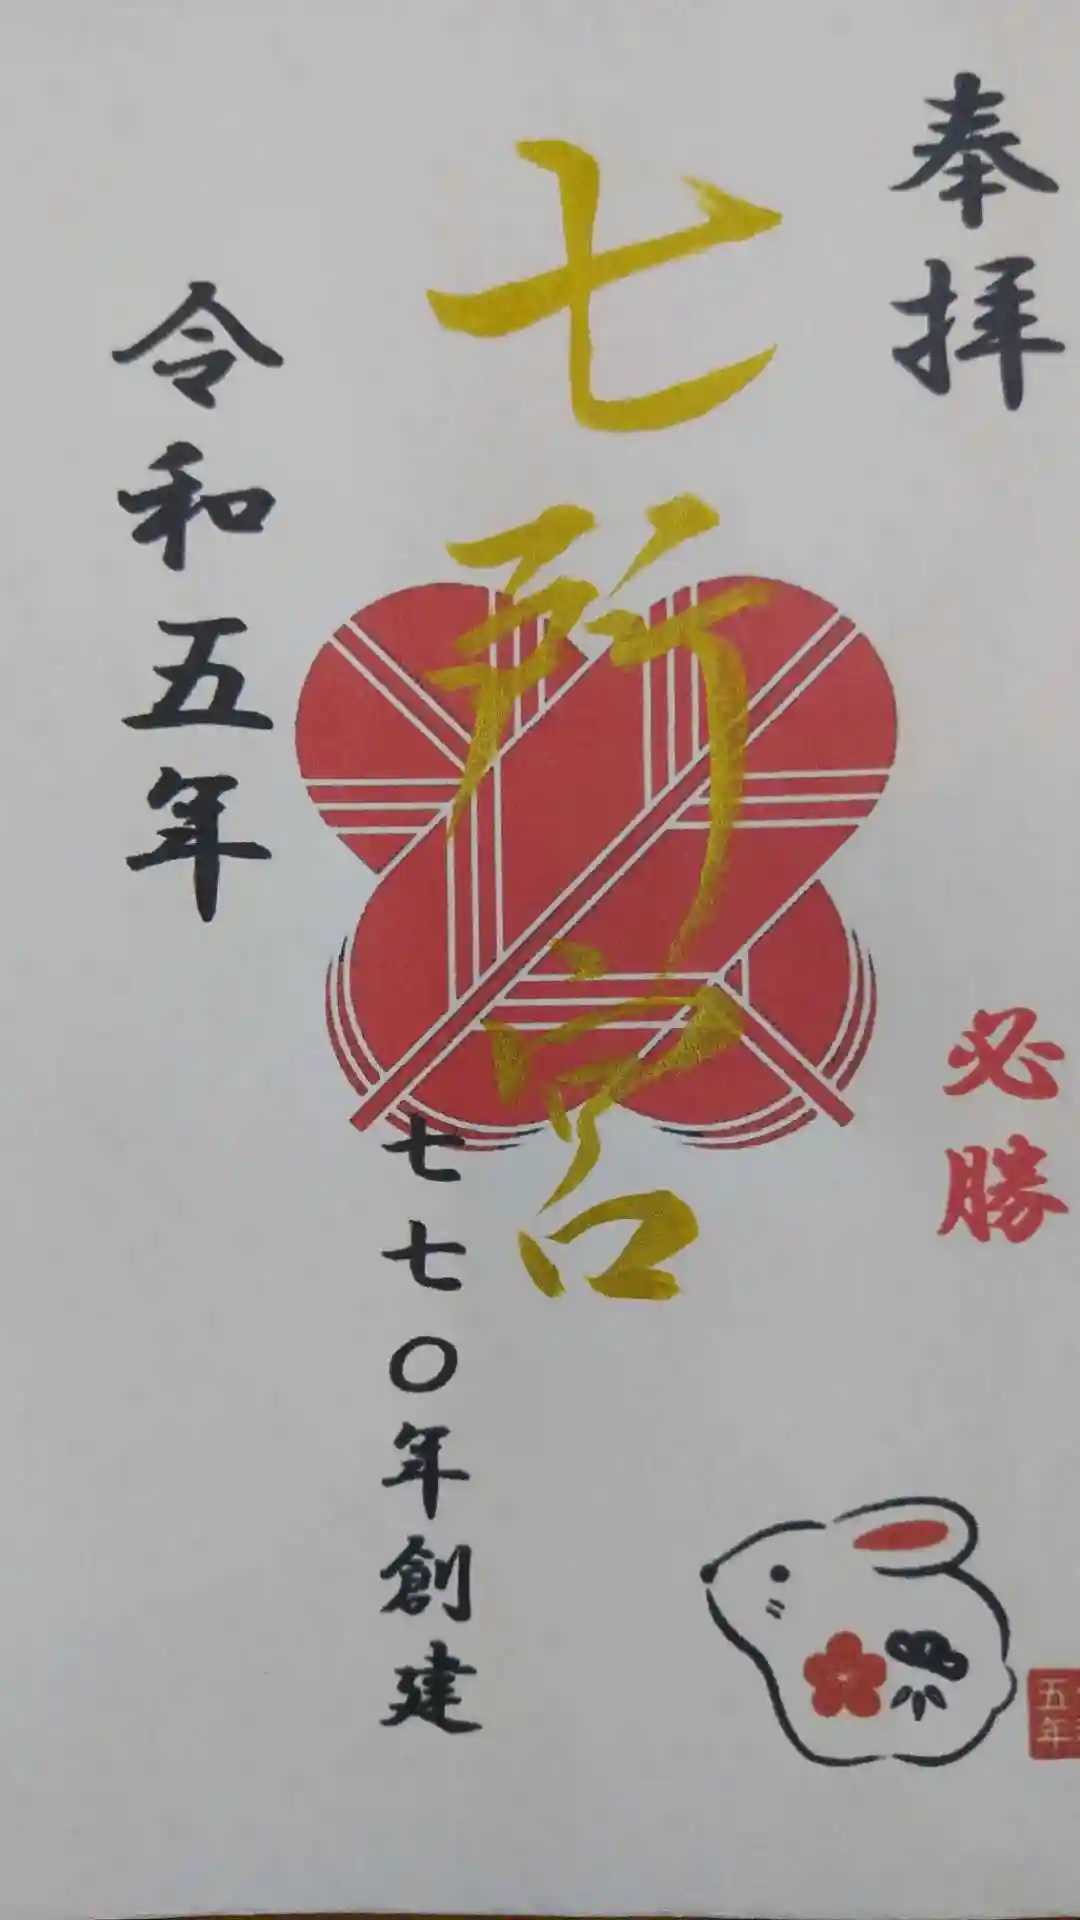 奉拝
必勝
七所宮
七七〇年創建
令和五年
五年